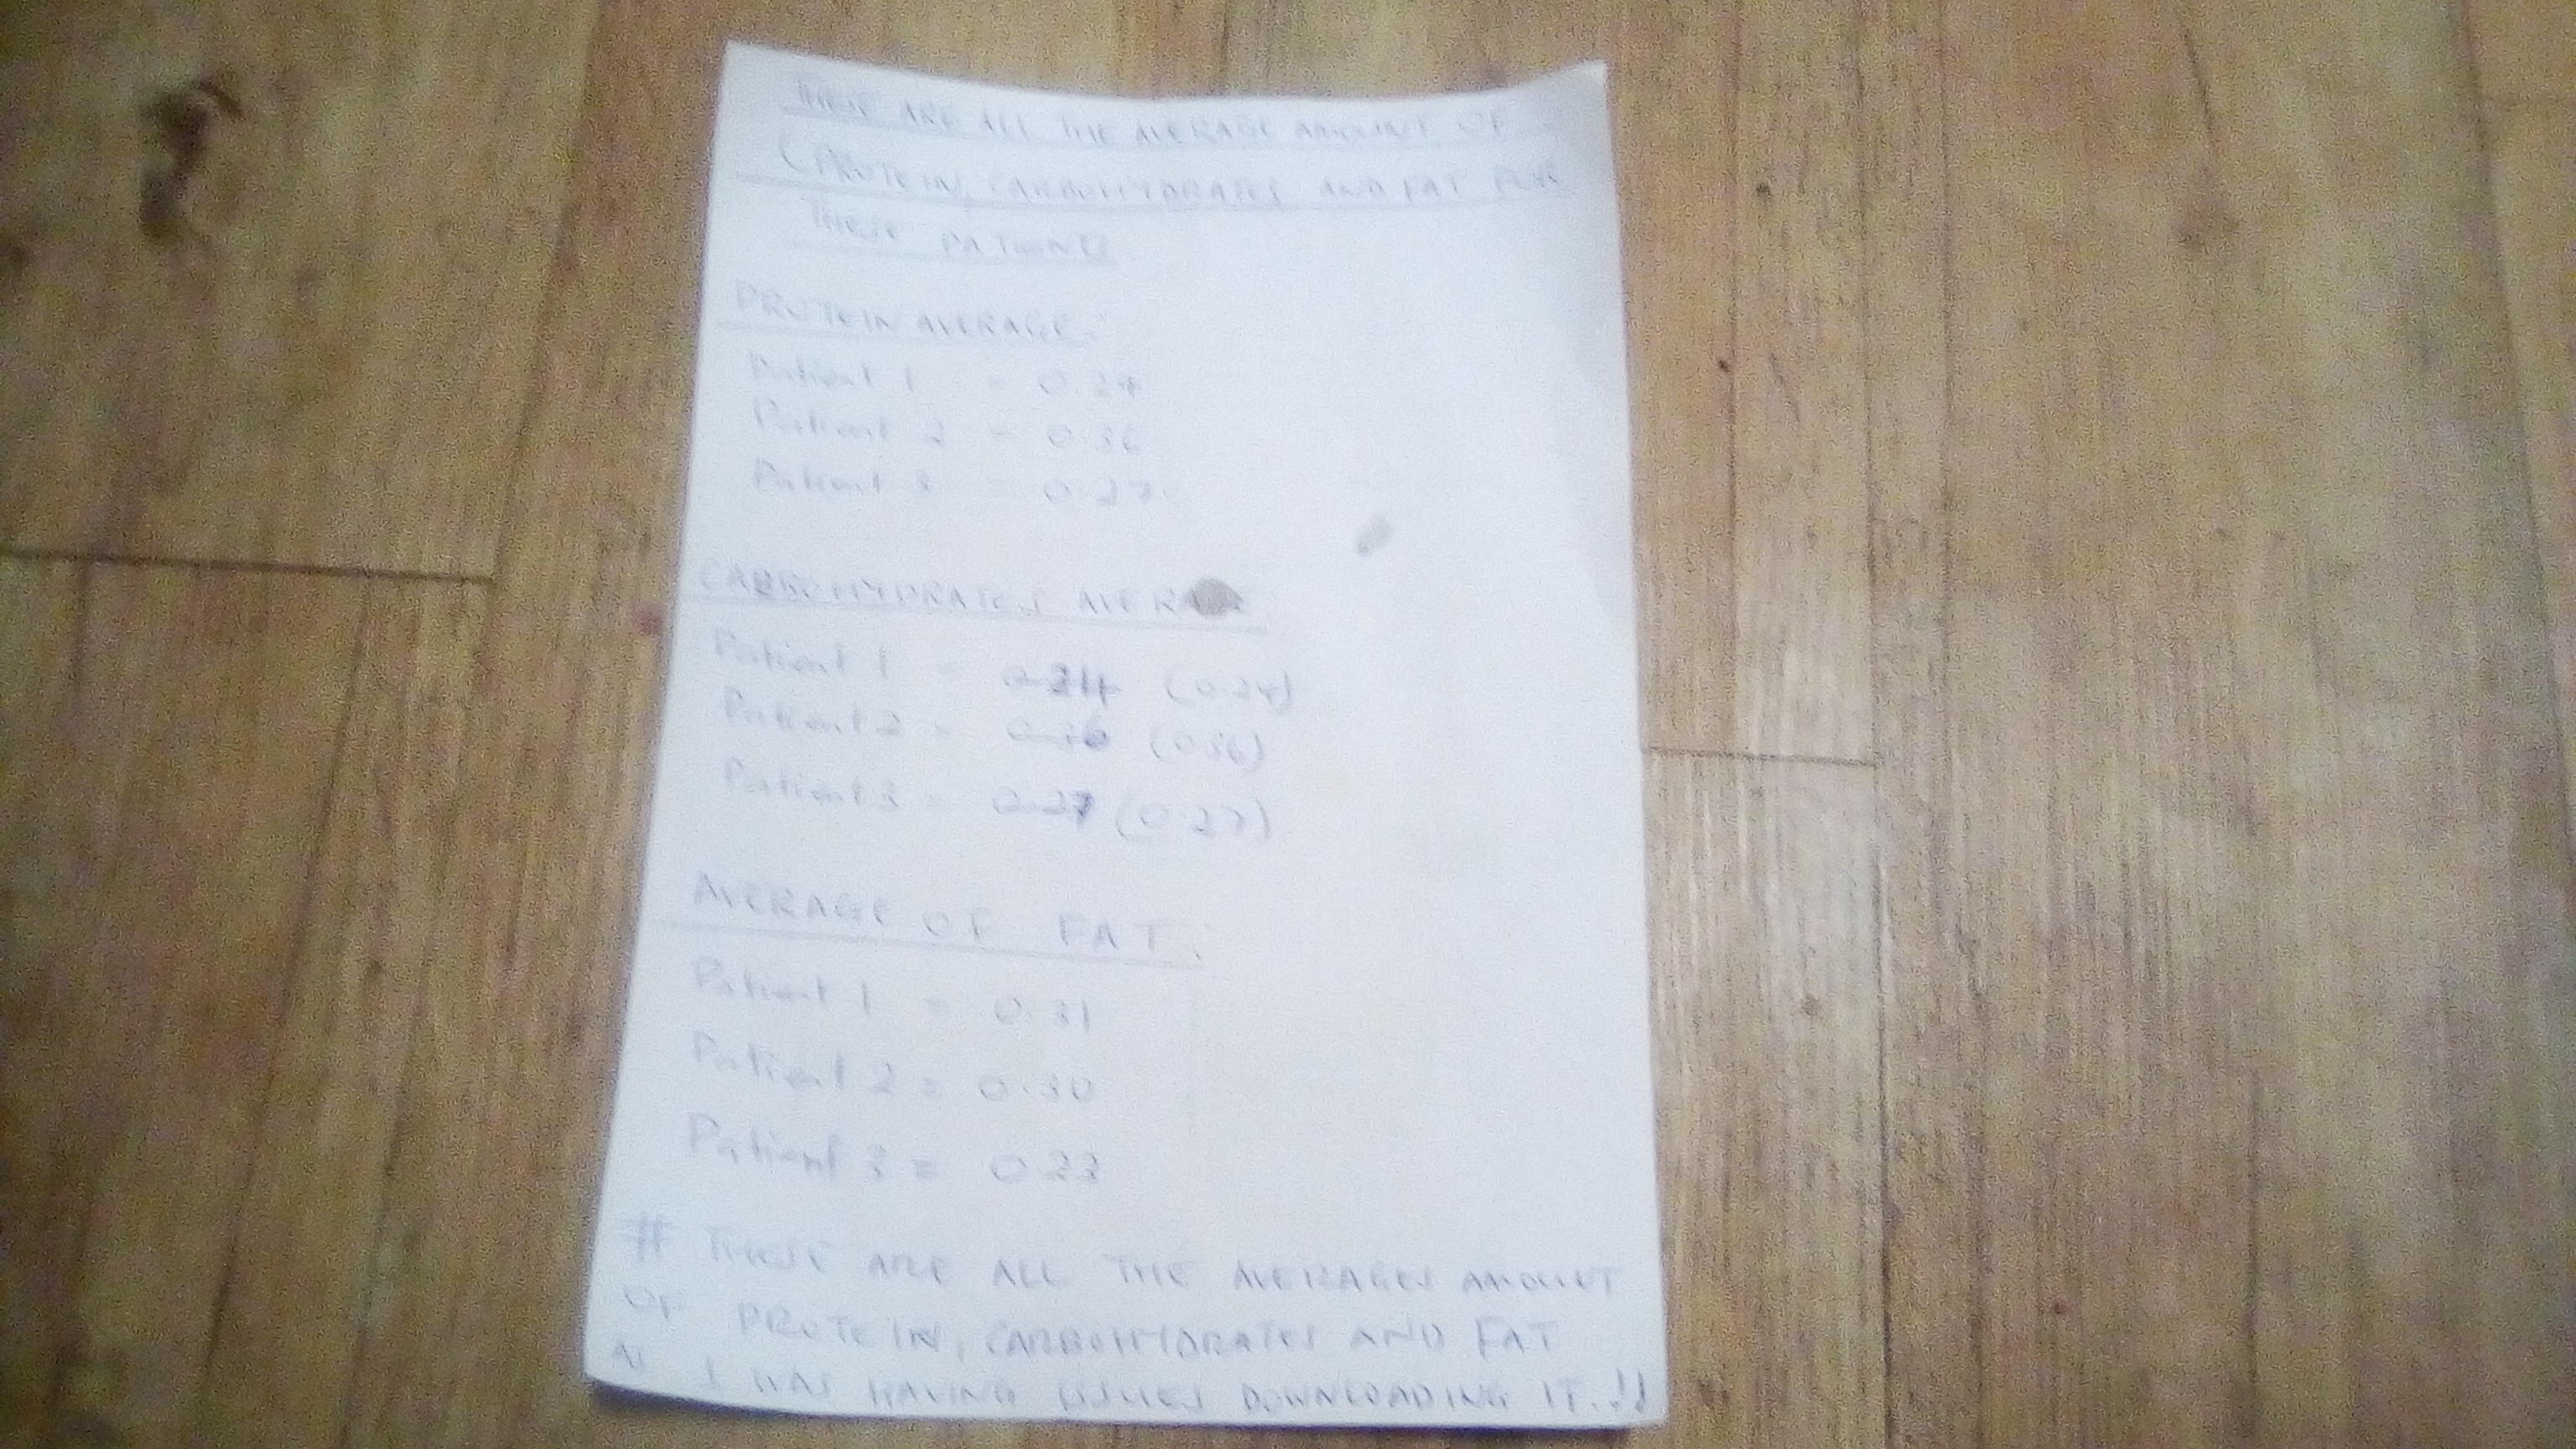 THESE ARE ALL THE AVERAGE AMOUNT OF
(PROTEIN, CARBOHYDRATES AND FAT FOR
THESE PATIENTS
PROTEIN AVERAGE:
Patient 1 = 0.24
Patient 2 = 0.36
Patient 3 = 0.27
CARBOHYDRATES AVERAGE:
Patient 1 = 0.24 (0.24)
Patient 2 = 0.36 (0.36)
Patient 3 = 0.27 (0.27)
AVERAGE OF FAT:
Patient 1 = 0.31
Patient 2 = 0.30
Patient 3 = 0.23
# THESE ARE ALL THE AVERAGES AMOUNT
OF PROTEIN, CARBOHYDRATES AND FAT
AS I WAS HAVING ISSUES DOWNLOADING IT.!!